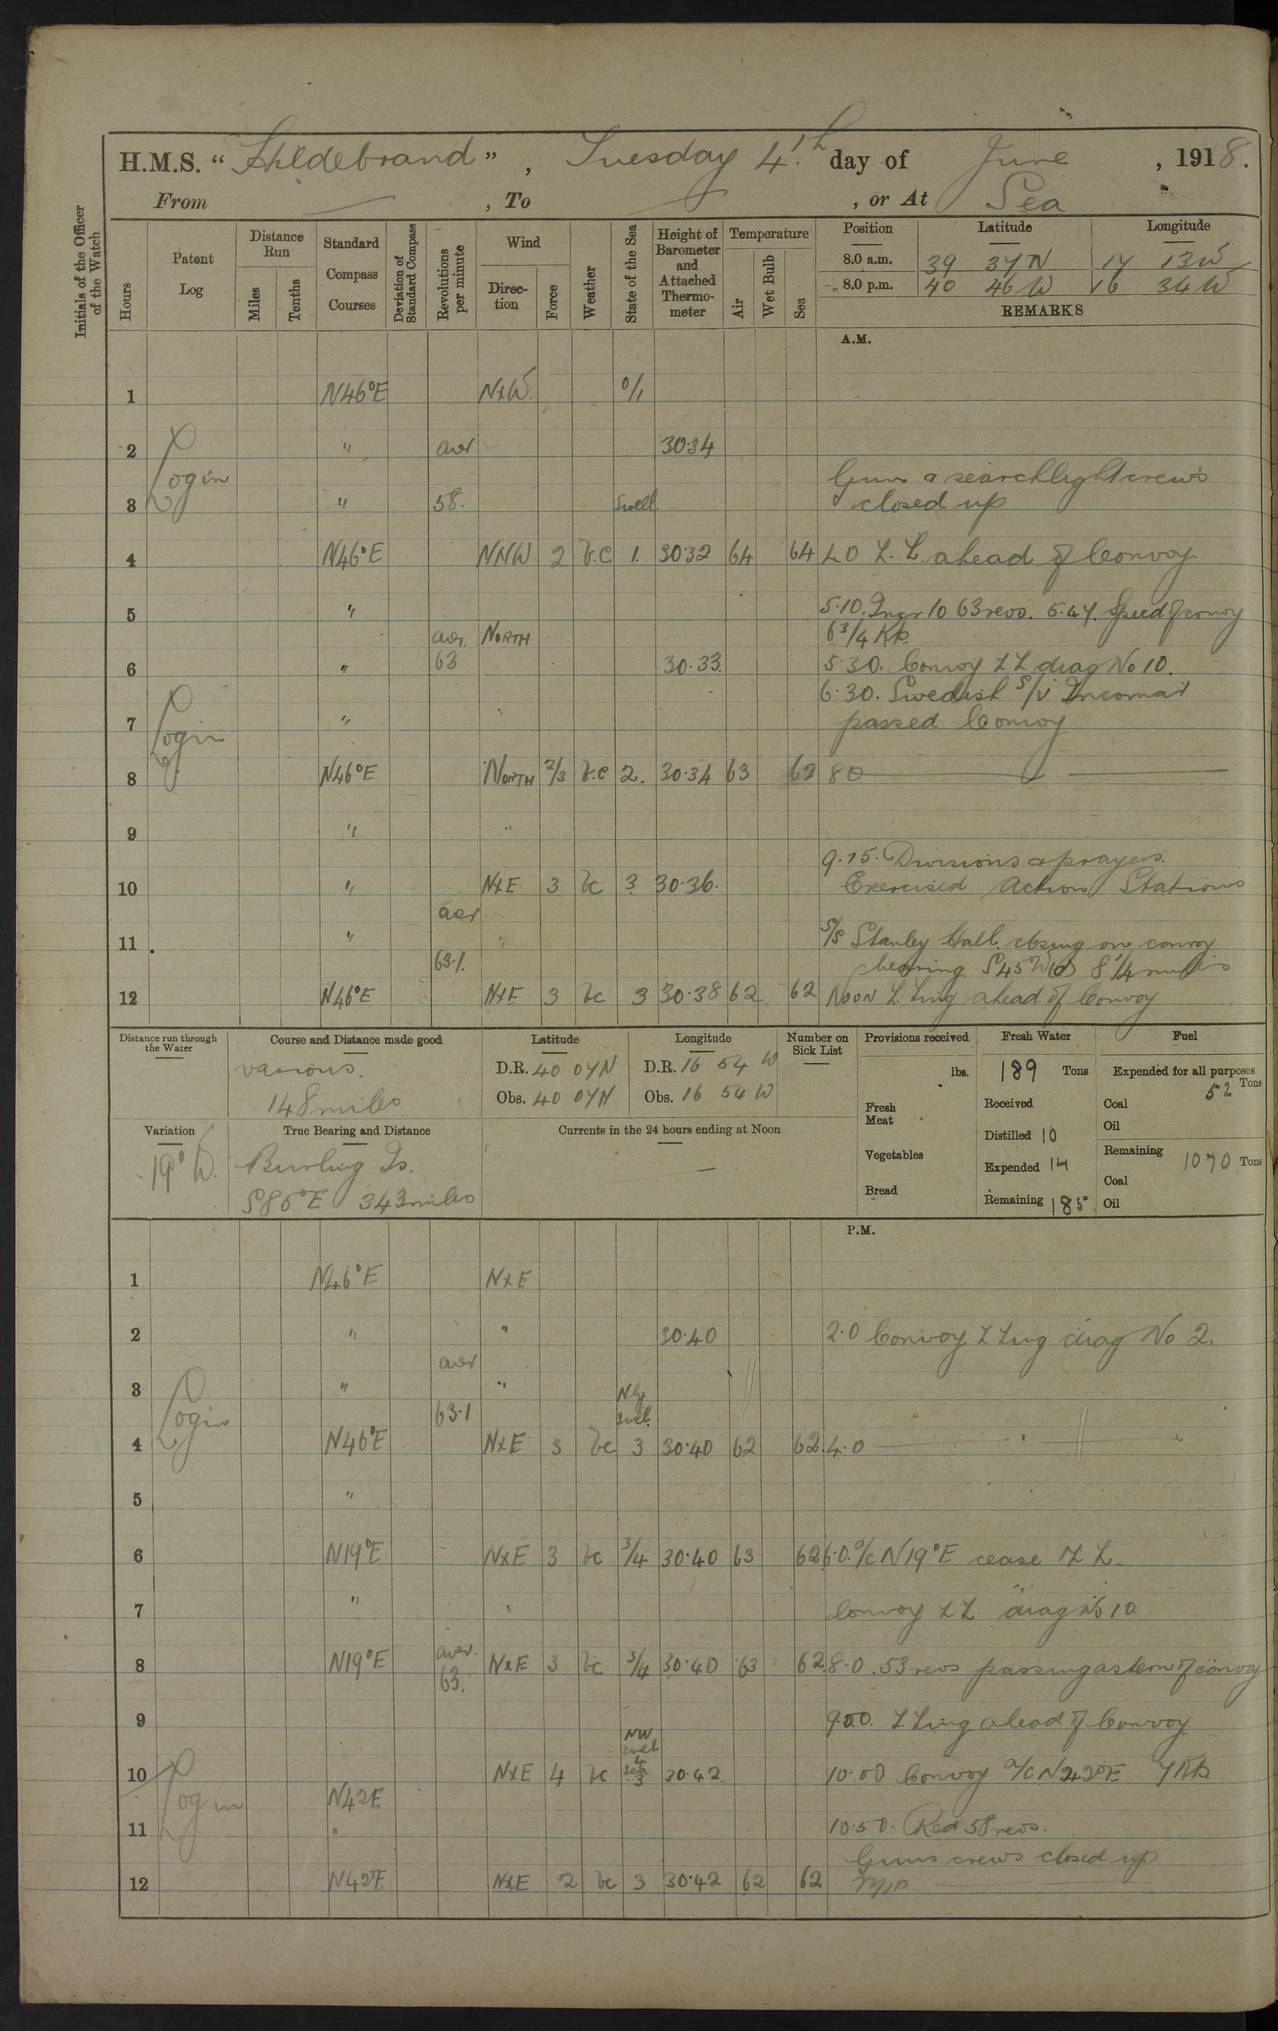 H.M.S. "Hildebrand", Tuesday 4th day of June, 1918.
From , To , or At Sea
Initials of the Officer of the Watch
Hours
Patent Log
Distance Run
Miles
Tenths
Standard Compass Courses
Deviation of Standard Compass
Revolutions per minute
Wind
Direction
Force
Weather
State of the Sea
Height of Barometer and Attached Thermometer
Temperature
Air
Wet Bulb
Sea
Position Latitude Longitude
8.0 a.m. 39 37 N 17 13 W
8.0 p.m. 40 46 W 16 34 W
REMARKS
A.M.
1 N46°E NxW 0/1
2 " aver 30.34
Log in
Guns & searchlight crews
3 " 58. Swell. closed up
4 N46°E NNW 2 b.c 1. 30.32 64 64 4.0 Z. Z. ahead of Convoy
5 " 5.10. Incr to 63 revs. 5.47. Speed of convoy
aver. NORTH 6 3/4 Kts.
6 " 63 30.33. 5.30. Convoy ZZ diag No 10.
6.30. Swedish S/V
7 " " passed Convoy
Log in
8 N46°E NORTH 2/3 b.c 2. 30.34 63 62 8.0
9 " "
9.15. Divisions & prayers.
10 " NxE 3 bc 3 30.36. Exercised Action Stations
aver
11 " " S/S Stanley Hall closing on convoy
63.1. bearing S45W(c) 8 1/4 miles
12 N46°E NxE 3 bc 3 30.38 62 62 NOON Z. Zing ahead of Convoy
Distance run through the Water
Course and Distance made good
various.
148 miles
Latitude
D.R. 40 07N
Obs. 40 07N
Longitude
D.R. 16 54 W
Obs. 16 54 W
Number on Sick List
Provisions received
lbs.
Fresh Meat
Vegetables
Bread
Fresh Water
189 Tons
Received
Distilled 10
Expended 14
Remaining 185
Fuel
Expended for all purposes
52 Tons
Coal
Oil
Remaining
1070 Tons
Coal
Oil
Variation
19° W.
True Bearing and Distance
Burling Is.
S86°E 343 miles
Currents in the 24 hours ending at Noon
P.M.
1 N46°E NxE
2 " " 30.40 2.0 Convoy Z Zing diag No 2.
aver
3 " " Nly
Log in
63.1 swell.
4 N46°E NxE 3 bc 3 30.40 62 62 4.0
5 "
6 N19°E NxE 3 bc 3/4 30.40 63 62 6.0. a/c N19°E cease Z Z.
7 " " Convoy ZZ diag No 10
8 N19°E aver. 63. NxE 3 bc 3/4 30.40 63 62 8.0. 53 revs passing astern of convoy
9 9.0.0. Z Zing ahead of Convoy
NW swell 4
10 NxE 4 bc sea 3 30.42 10.00 Convoy a/c N42°E 7 Kts
Log in
N42E
11 " 10.50. Red 58 revs.
Guns crews closed up
12 N42°E NxE 2 bc 3 30.42 62 62